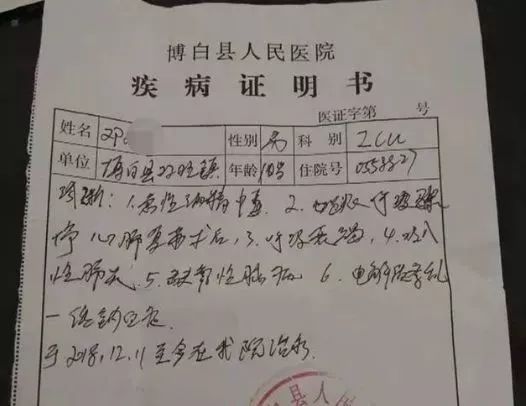 博白县人民医院
疾病证明书
医证字第 号
姓名 邓 性别 男 科别 ICU
单位 博白县双旺镇 年龄 住院号 0558827
诊断：1.急性酒精中毒 2. 呼吸骤
停 心肺复苏术后，3.呼吸衰竭，4.吸入
性肺炎 5. 性脑病 6.电解质紊乱
一低钠血症
于2018.12.11至今在我院治疗
县人